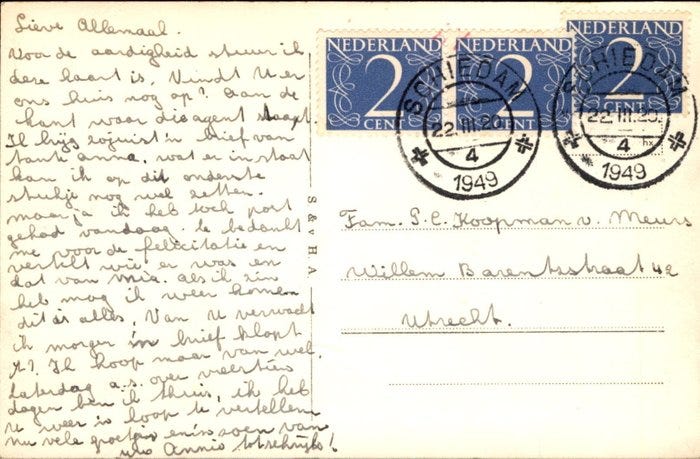 Lieve Allemaal.
Voor de aardigheid stuur ik
deze kaart is. Vindt U er
ons huis nog op? Aan de
kant waar die agent staapt.
Ik krijg zojuist'n brief van
tante Anna, wat er in staat
kan ik op dit onderste
stukje nog wel zetten.
maar, ja ik heb toch post
gehad vandaag. Ze bedankt
me voor de felicitatie en
vertelt wie er was en
dat van Mia. als ik zin
heb mag ik weer komen
dit is alles, Van U verwacht
ik morgen 'n brief klopt
't? Ik hoop maar van wel.
Zaterdag a.s. over veertien
dagen ben ik thuis, ik heb
U weer 'n loop te vertellen
nu vele groetjes en 'n zoen van
uw Annie tot schrijfs!
S & v H A
NEDERLAND NEDERLAND NEDERLAND
2 2 2
CENT CENT CENT
SCHIEDAM
22.III.20
4
1949
SCHIEDAM
22.III.20
4
1949
Fam. P. C. Koopman v. Meurs
Willem Barentszstraat 42
Utrecht.